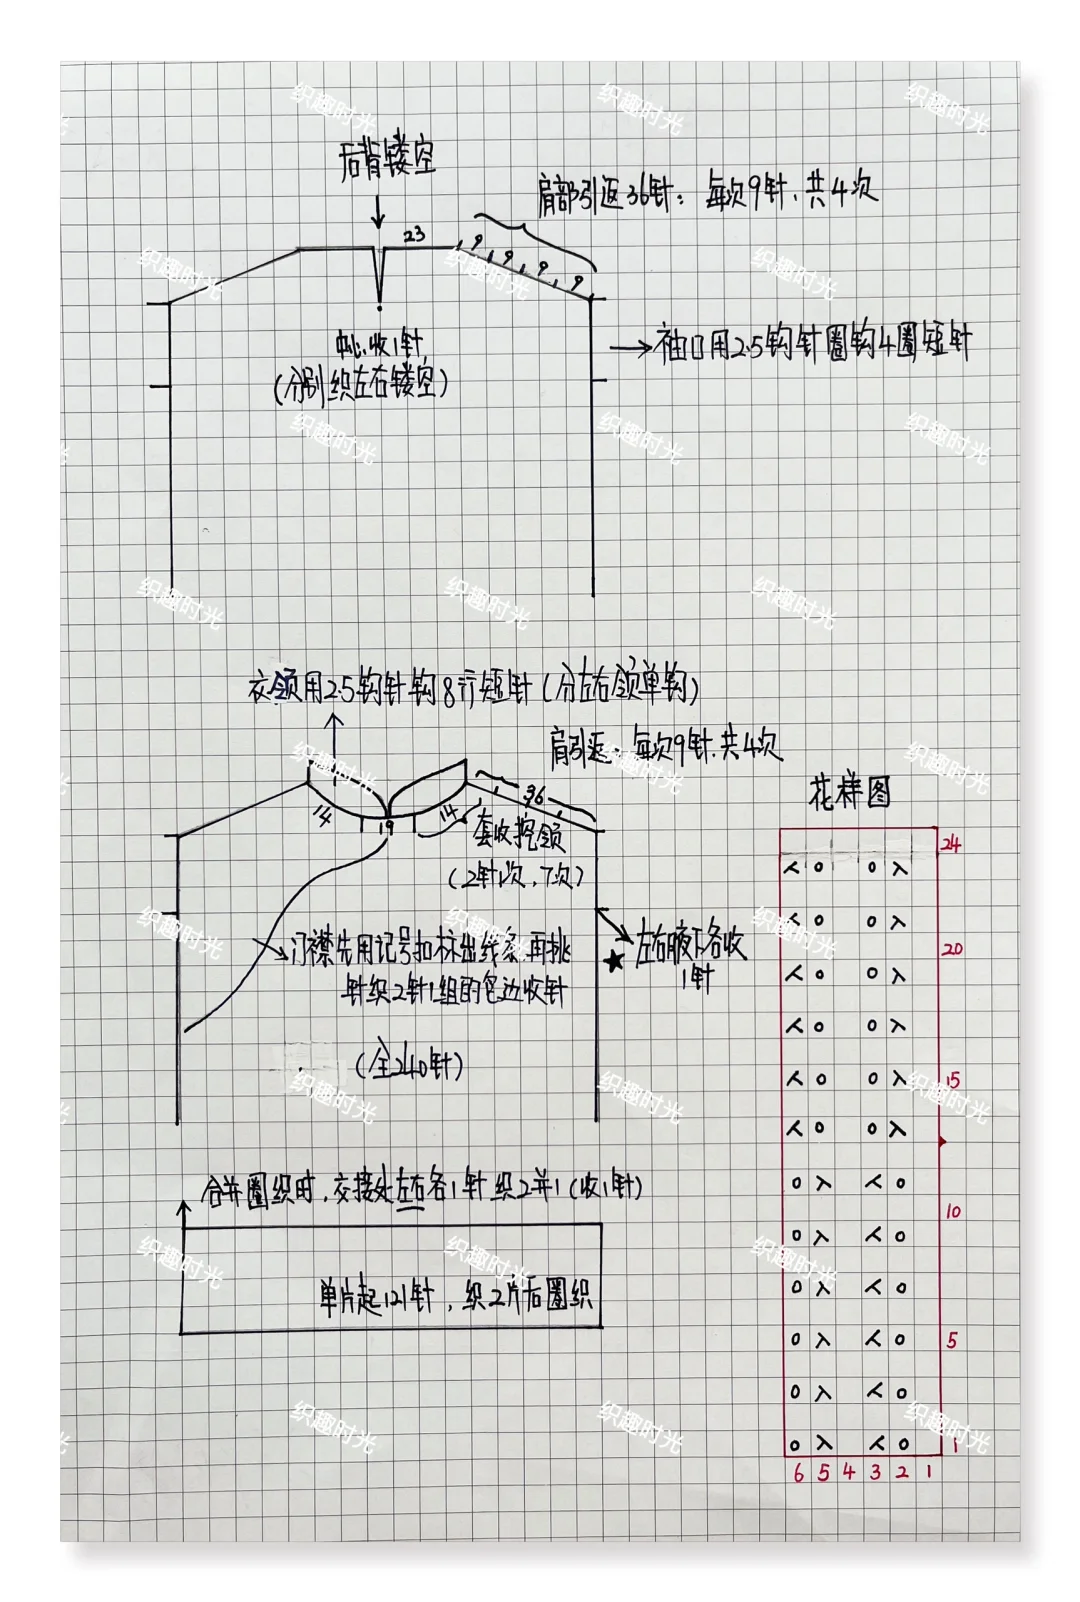 后背镂空
肩部引返36针：每次9针、共4次
23
9 9 9 9
中心收1针
(分别织左右镂空)
袖口用2.5钩针圈钩4圈短针
衣领用2.5钩针钩8行短针(分左右领单钩)
肩引返：每次9针.共4次
36
14 19 14
套收挖领
(2针1次、7次)
门襟先用记号扣标出线条再挑
针织2针1组的包边收针
(全240针)
左右腋下各收
1针
合并圈织时，交接处左右各1针织2并1(收1针)
单片起121针，织2片后圈织
花样图
24
20
15
10
5
1
6 5 4 3 2 1
织趣时光